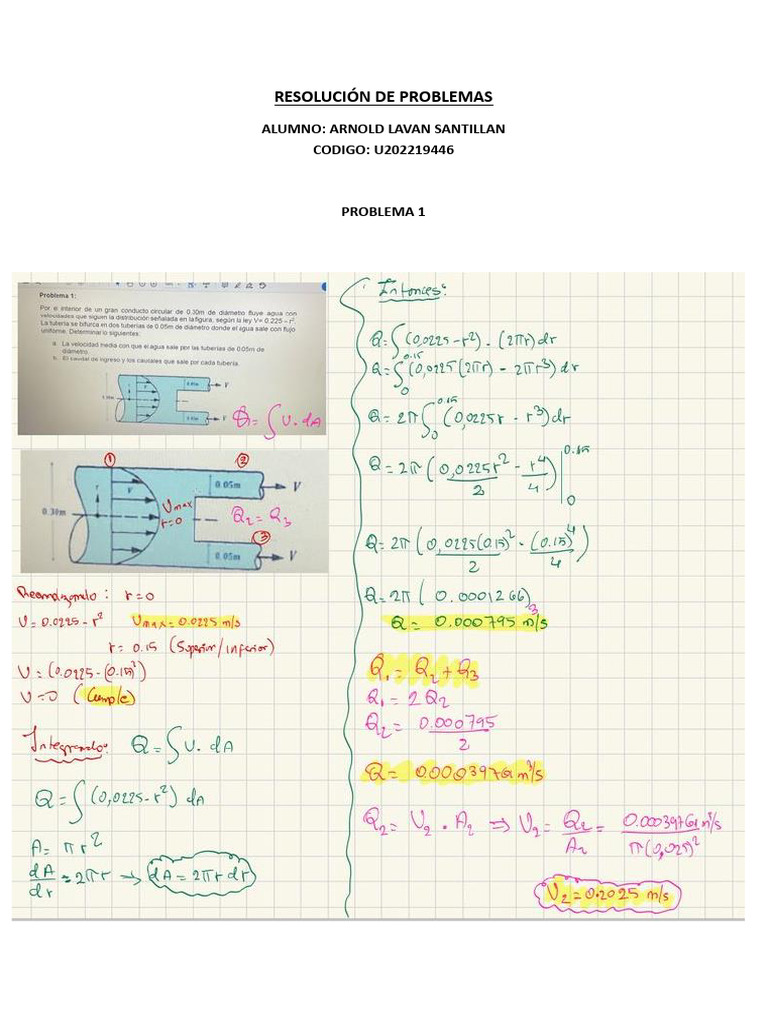 RESOLUCIÓN DE PROBLEMAS
ALUMNO: ARNOLD LAVAN SANTILLAN
CODIGO: U202219446
PROBLEMA 1
Problema 1:
Por el interior de un gran conducto circular de 0.30m de diámetro fluye agua con
velocidades que siguen la distribución señalada en la figura, según la ley V= 0.225 – r².
La tubería se bifurca en dos tuberías de 0.05m de diámetro donde el agua sale con flujo
uniforme. Determinar lo siguientes:
a. La velocidad media con que el agua sale por las tuberías de 0.05m de
diámetro.
b. El caudal de ingreso y los caudales que sale por cada tubería.
0.30m
r
v
0.05m
V
0.05m
V
Q = ∫ V. dA
1
2
0.30m
r
v
Vmax
r=0
0.05m
V
Q2 = Q3
3
0.05m
V
r=0
V = 0.0225 - r² Vmax = 0.0225 m/s
r = 0.15 (Superior/inferior)
V = (0.0225 - (0.15)²)
V = 0 (Cumple)
Integrando: Q = ∫ V. dA
Q = ∫ (0,0225 - r²) dA
A = πr²
dA/dr = 2πr → dA = 2πr dr
Entonces:
Q = ∫ (0,0225 - r²) . (2πr) dr
Q = ∫₀^0.15 (0,0225(2πr) - 2πr³) dr
Q = 2π ∫₀^0.15 (0,0225r - r³) dr
Q = 2π (0,0225r²/2 - r⁴/4) |₀^0.15
Q = 2π (0,0225(0.15)²/2 - (0.15)⁴/4)
Q = 2π (0.0001266)
Q = 0.000795 m³/s
Q1 = Q2 + Q3
Q1 = 2Q2
Q2 = 0.000795/2
Q = 0.00039761 m³/s
Q2 = V2 . A2 ⇒ V2 = Q2/A2 = 0.00039761 m³/s / π(0,025)²
V2 = 0.2025 m/s